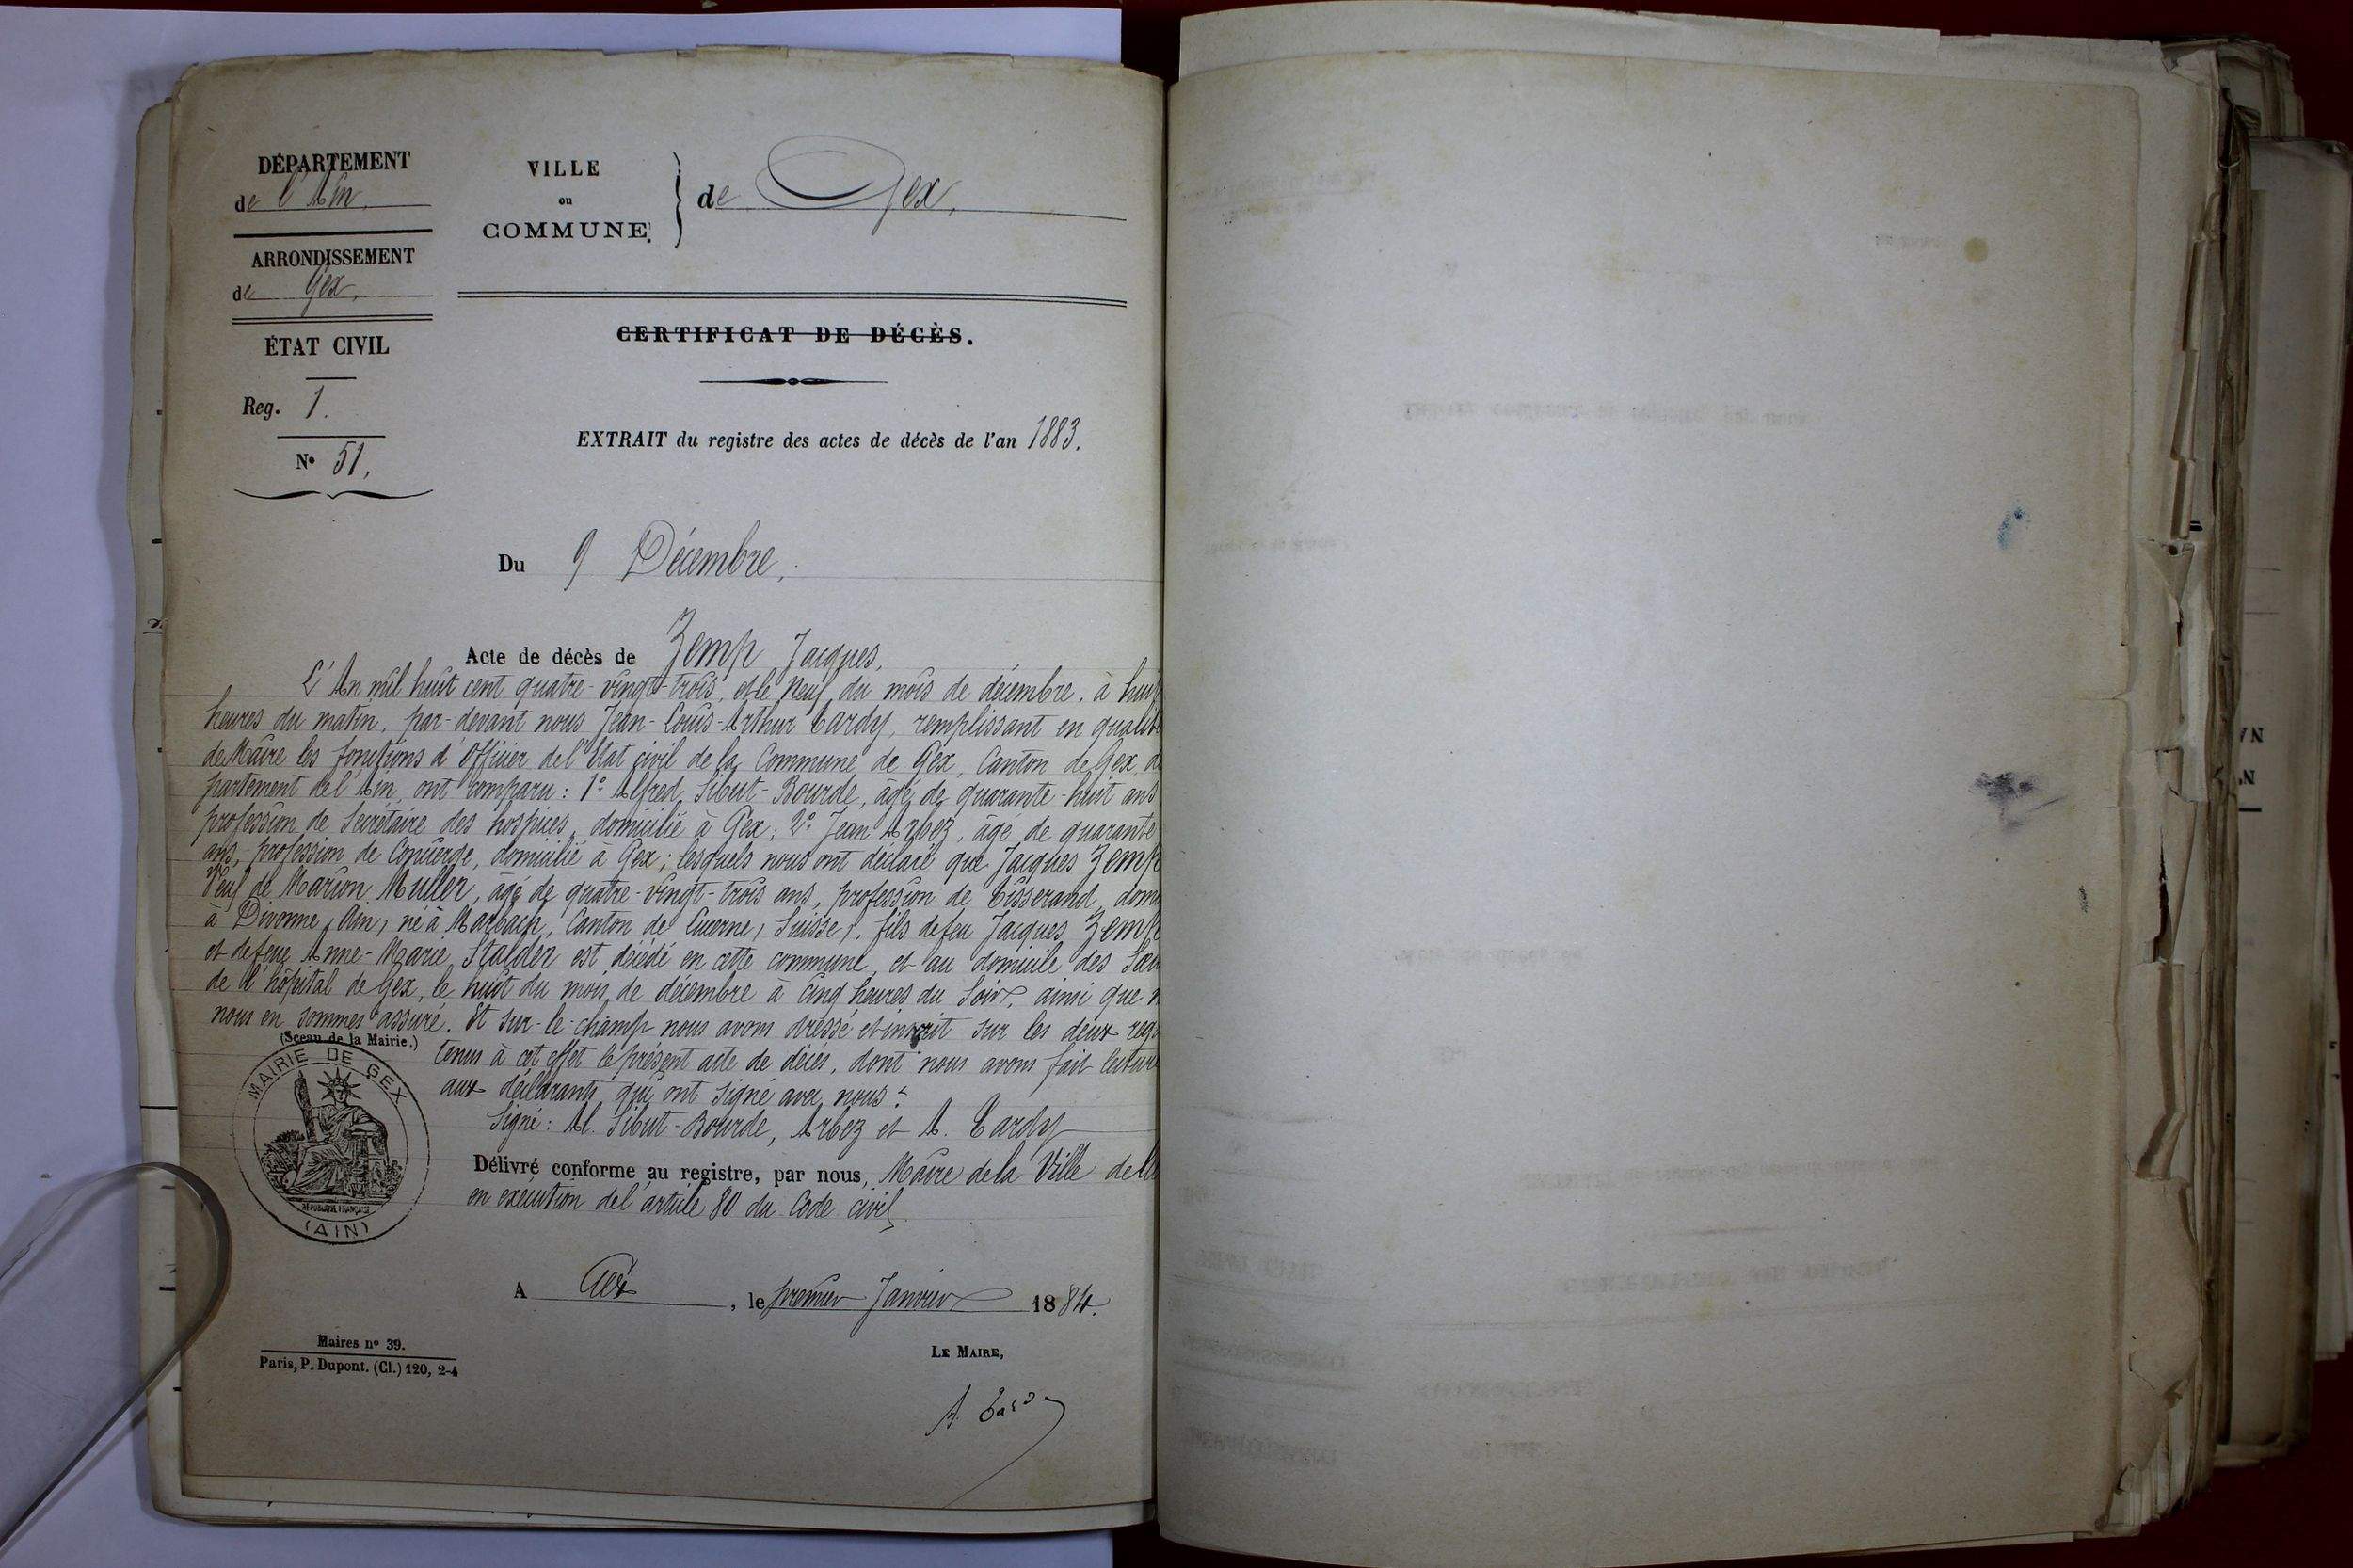 DÉPARTEMENT
de l'Ain.
ARRONDISSEMENT
de Gex,
ÉTAT CIVIL
Reg. 1.
N° 51,
VILLE
ou
COMMUNE
de Gex,
CERTIFICAT DE DÉCÈS.
EXTRAIT du registre des actes de décès de l'an 1883.
Du 9 Décembre,
Acte de décès de Zemp Jacques,
L'An mil huit cent quatre-vingt-trois, et le neuf du mois de décembre, à hui
heures du matin, par-devant nous Jean-Louis-Arthur Tardy, remplissant en qualité
de Maire les fonctions d'Officier de l'Etat civil de la Commune de Gex, Canton de Gex, dé
partement de l'Ain, ont comparu : 1° Alfred Sibut-Bourde, âgé de quarante-huit ans
profession de Secrétaire des hospices, domicilié à Gex ; 2° Jean Arbez, âgé de quarante
ans, profession de Concierge, domicilié à Gex ; lesquels nous ont déclaré que Jacques Zemp
Veuf de Marion Muller, âgé de quatre-vingt-trois ans, profession de Tisserand, domi
à Divonne (Ain) né à Marbach, Canton de Lucerne (Suisse), fils de feu Jacques Zemp
et de feue Anne-Marie Stalder est décédé en cette commune, et au domicile des Sœu
de l'hôpital de Gex, le huit du mois de décembre à cinq heures du Soir, ainsi que n
nous en sommes assuré. Et sur-le-champ nous avons dressé et inscrit sur les deux regi
tenus à cet effet le présent acte de décès, dont nous avons fait lecture
aux déclarants qui ont signé avec nous.
Signé : Al. Sibut-Bourde, Arbez et A. Tardy
(Sceau de la Mairie.)
MAIRIE DE GEX
RÉPUBLIQUE FRANÇAISE
(AIN)
Délivré conforme au registre, par nous, Maire de la Ville de
en exécution de l'article 80 du Code civil
A Gex, le premier Janvier 1884.
Maires n° 39.
Paris, P. Dupont. (Cl.) 120, 2-4
LE MAIRE,
A. Tardy